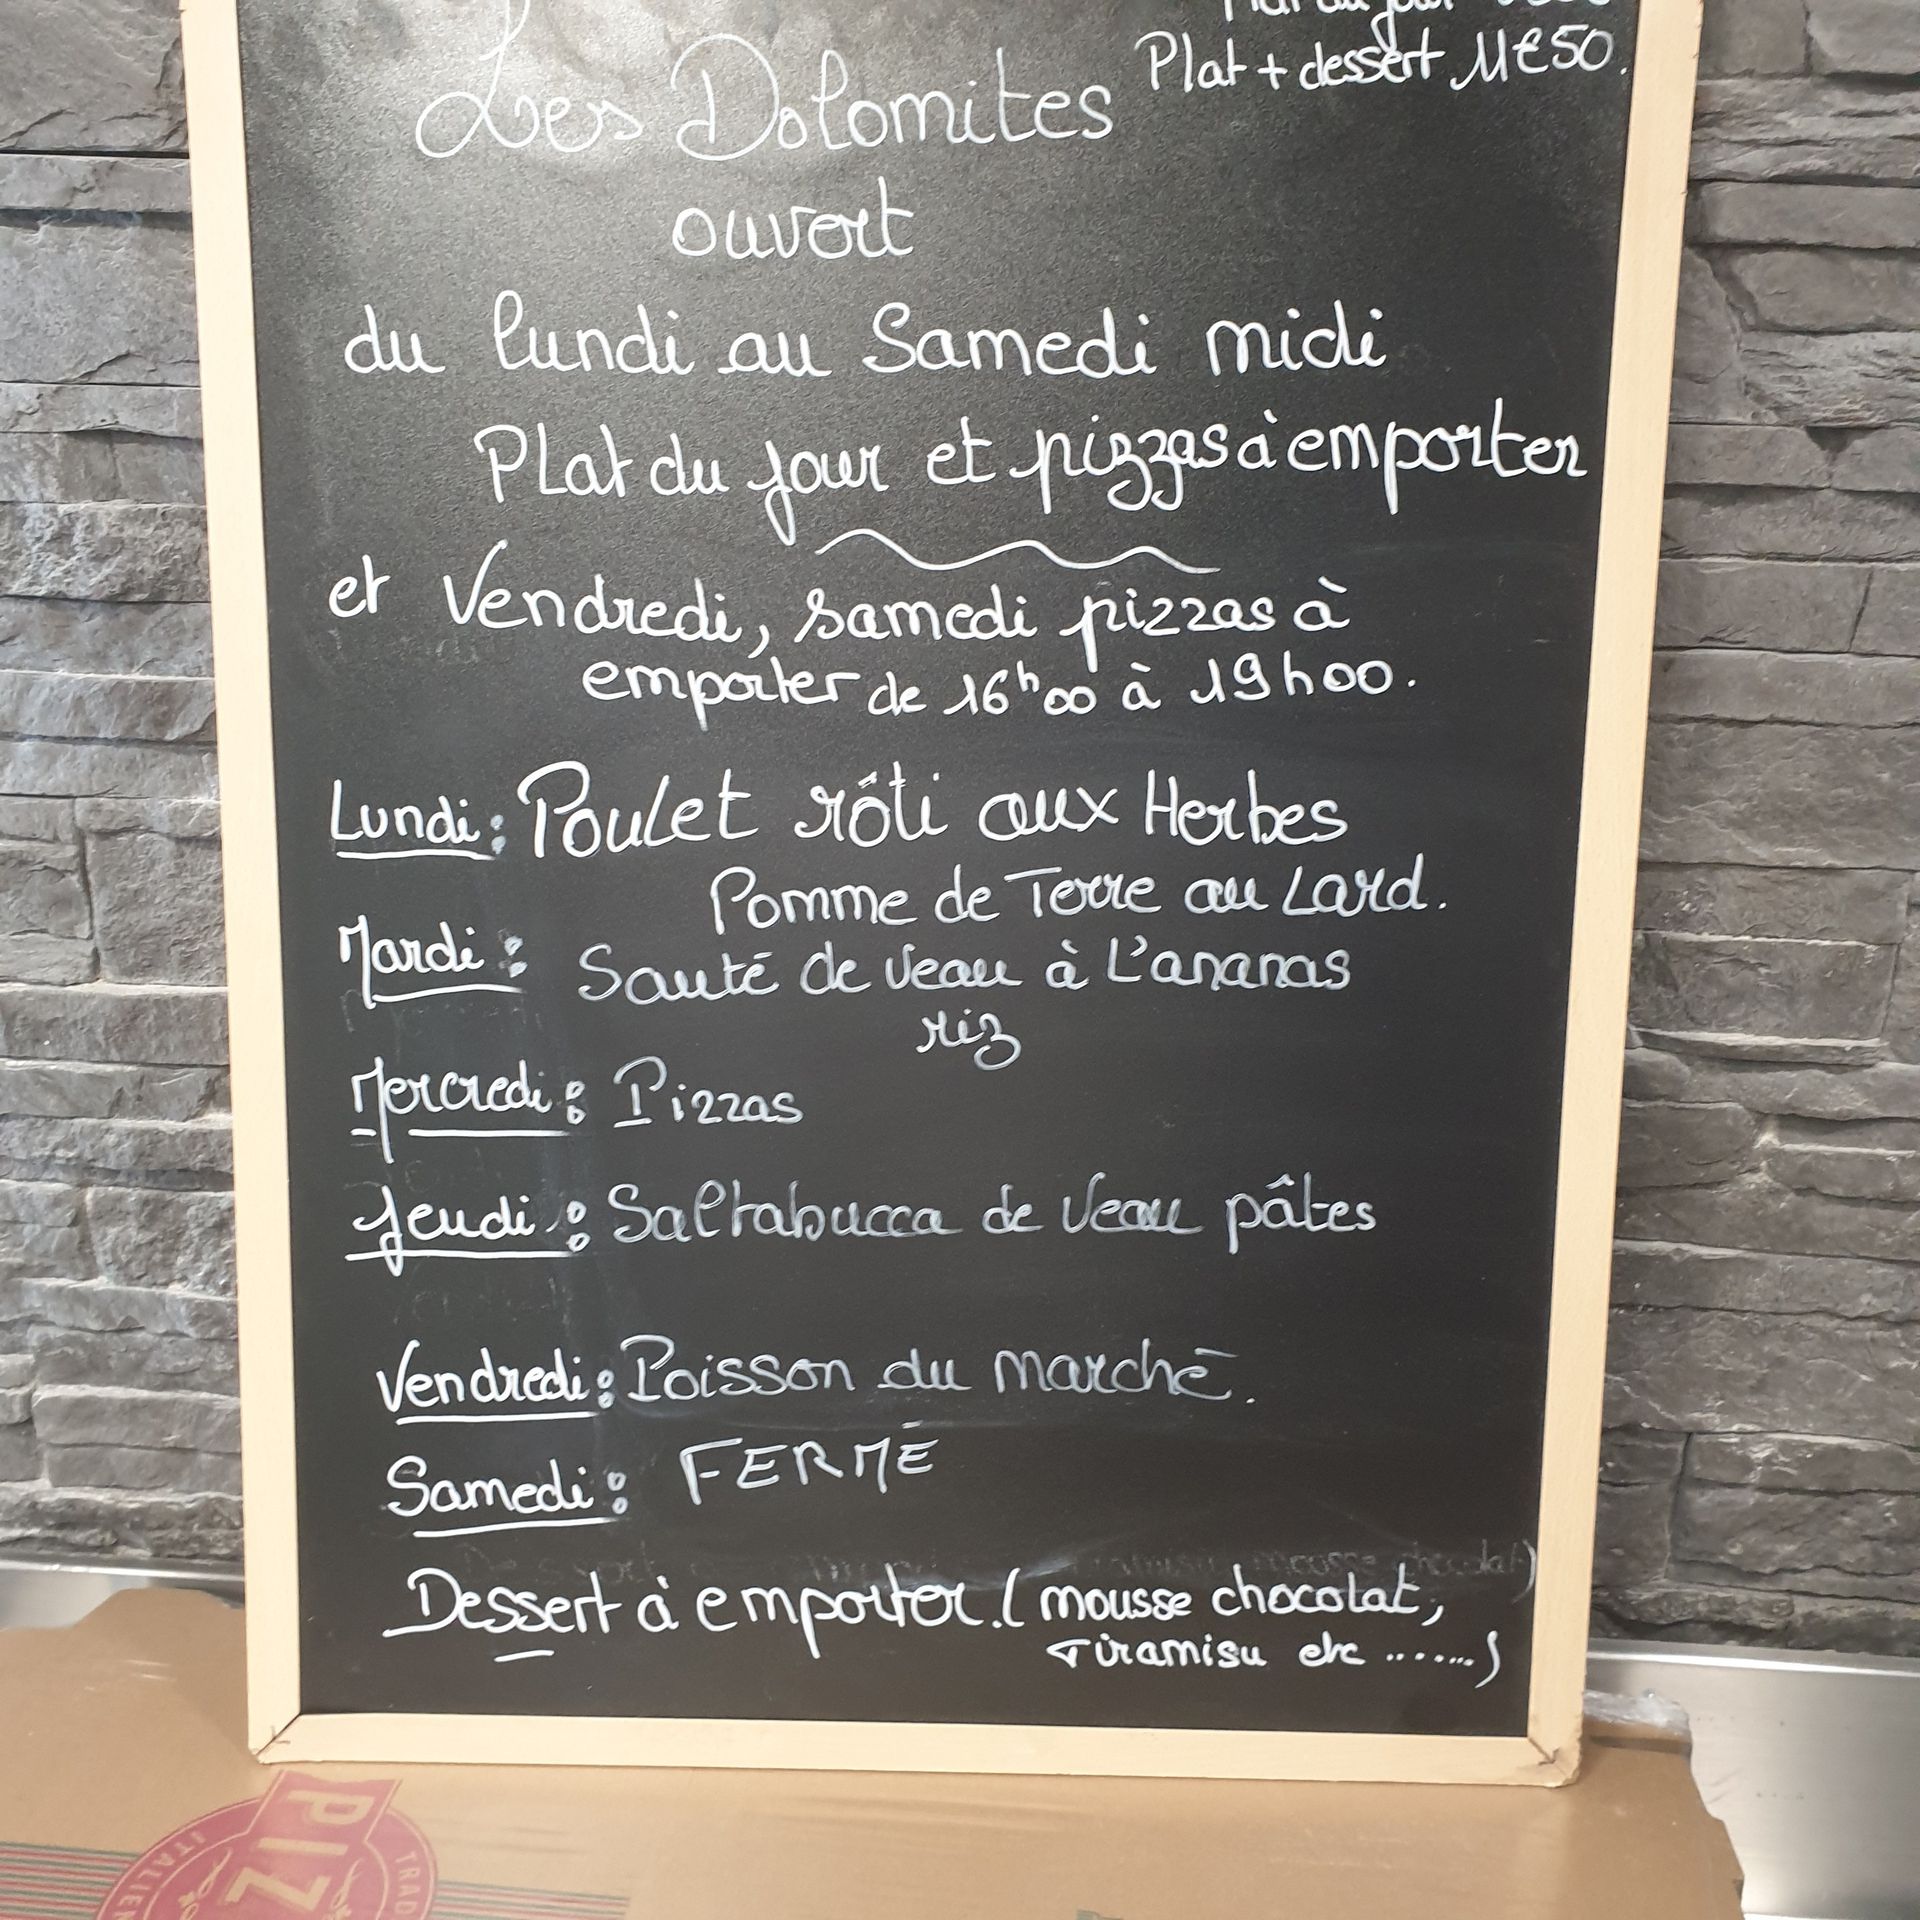 Plat du jour
Plat + dessert 11€50.
Les Dolomites
ouvert
du lundi au Samedi midi
Plat du jour et pizzas à emporter
et Vendredi, samedi pizzas à
emporter de 16h00 à 19h00.
Lundi : Poulet rôti aux Herbes
Pomme de Terre au Lard.
Mardi : Sauté de Veau à L'ananas
riz
Mercredi : Pizzas
Jeudi : Saltabucca de Veau pâtes
Vendredi : Poisson du Marché.
Samedi : FERMÉ
Dessert à emporter. (mousse chocolat,
Tiramisu etc .......)
PIZ
ITALIEN
TRAD